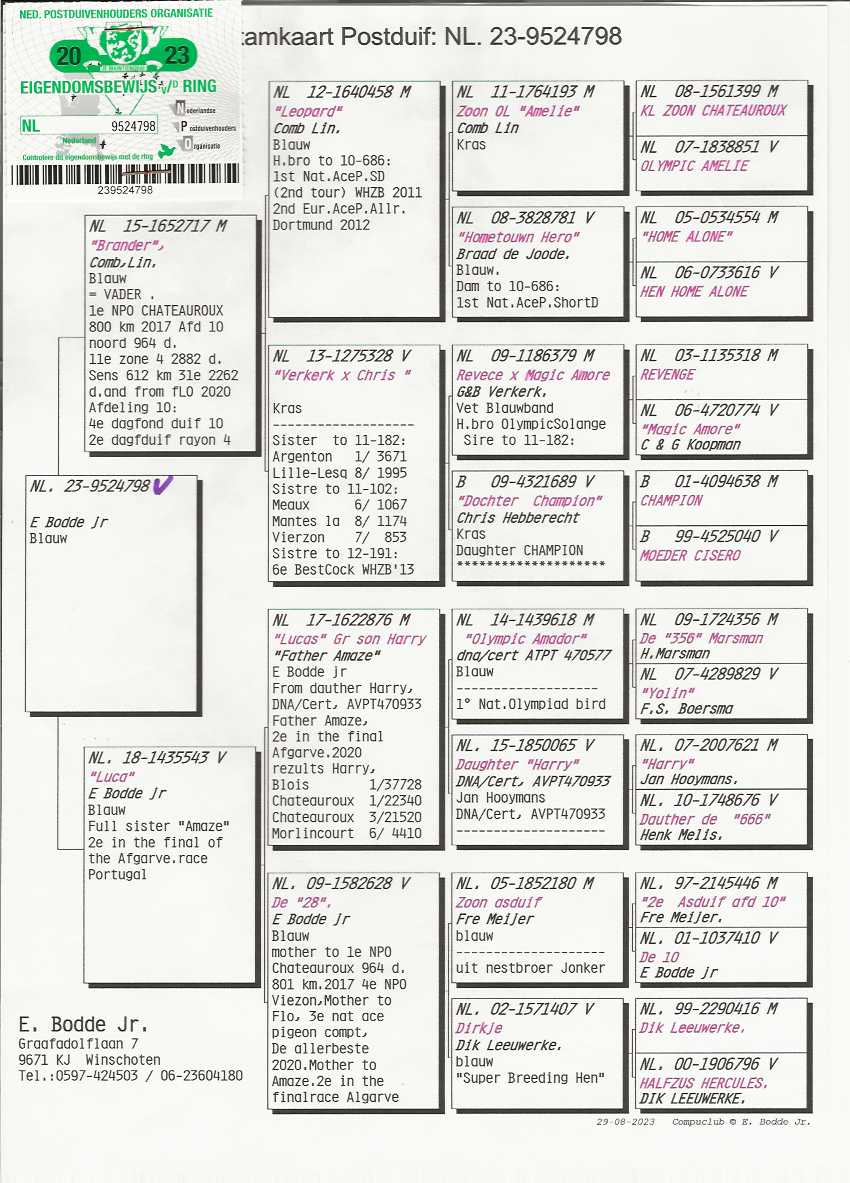 NED. POSTDUIVENHOUDERS ORGANISATIE
20 23
EIGENDOMSBEWIJS v/D RING
NL 9524798
Nederland
Nederlandse
Postduivenhouders
Organisatie
Controleer dit eigendomsbewijs met de ring
239524798
tamkaart Postduif: NL. 23-9524798
NL. 23-9524798 V
E Bodde jr
Blauw
NL 15-1652717 M
"Brander",
Comb,Lin.
Blauw
= VADER .
1e NPO CHATEAUROUX
800 km 2017 Afd 10
noord 964 d.
11e zone 4 2882 d.
Sens 612 km 31e 2262
d.and from fLO 2020
Afdeling 10:
4e dagfond duif 10
2e dagfduif rayon 4
NL. 18-1435543 V
"Luca"
E Bodde jr
Blauw
Full sister "Amaze"
2e in the final of
the Afgarve.race
Portugal
NL 12-1640458 M
"Leopard"
Comb Lin.
Blauw
H.bro to 10-686:
1st Nat.AceP.SD
(2nd tour) WHZB 2011
2nd Eur.AceP.Allr.
Dortmund 2012
NL 13-1275328 V
"Verkerk x Chris "
Kras
-------------------
Sister to 11-182:
Argenton 1/ 3671
Lille-Lesq 8/ 1995
Sistre to 11-102:
Meaux 6/ 1067
Mantes la 8/ 1174
Vierzon 7/ 853
Sistre to 12-191:
6e BestCock WHZB'13
NL 17-1622876 M
"Lucas" Gr son Harry
"Father Amaze"
E Bodde jr
From dauther Harry,
DNA/Cert, AVPT470933
Father Amaze,
2e in the final
Afgarve.2020
rezults Harry,
Blois 1/37728
Chateauroux 1/22340
Chateauroux 3/21520
Morlincourt 6/ 4410
NL. 09-1582628 V
De "28".
E Bodde jr
Blauw
mother to 1e NPO
Chateauroux 964 d.
801 km.2017 4e NPO
Viezon,Mother to
Flo, 3e nat ace
pigeon compt,
De allerbeste
2020.Mother to
Amaze.2e in the
finalrace Algarve
NL 11-1764193 M
Zoon OL "Amelie"
Comb Lin
Kras
NL 08-3828781 V
"Hometouwn Hero"
Braad de Joode.
Blauw.
Dam to 10-686:
1st Nat.AceP.ShortD
NL 09-1186379 M
Revece x Magic Amore
G&B Verkerk.
Vet Blauwband
H.bro OlympicSolange
Sire to 11-182:
B 09-4321689 V
"Dochter Champion"
Chris Hebberecht
Kras
Daughter CHAMPION
********************
NL 14-1439618 M
"Olympic Amador"
dna/cert ATPT 470577
Blauw
-------------------
1° Nat.Olympiad bird
NL. 15-1850065 V
Daughter "Harry"
DNA/Cert, AVPT470933
Jan Hooymans
DNA/Cert, AVPT470933
--------------------
NL. 05-1852180 M
Zoon asduif
Fre Meijer
blauw
--------------------
uit nestbroer Jonker
NL. 02-1571407 V
Dirkje
Dik Leeuwerke.
blauw
"Super Breeding Hen"
NL 08-1561399 M
KL ZOON CHATEAUROUX
NL 07-1838851 V
OLYMPIC AMELIE
NL 05-0534554 M
"HOME ALONE"
NL 06-0733616 V
HEN HOME ALONE
NL 03-1135318 M
REVENGE
NL 06-4720774 V
"Magic Amore"
C & G Koopman
B 01-4094638 M
CHAMPION
B 99-4525040 V
MOEDER CISERO
NL 09-1724356 M
De "356" Marsman
H.Marsman
NL 07-4289829 V
"Yolin"
F.S. Boersma
NL. 07-2007621 M
"Harry"
Jan Hooymans.
NL. 10-1748676 V
Dauther de "666"
Henk Melis.
NL. 97-2145446 M
"2e Asduif afd 10"
Fre Meijer.
NL. 01-1037410 V
De 10
E Bodde jr
NL. 99-2290416 M
Dik Leeuwerke.
NL. 00-1906796 V
HALFZUS HERCULES.
DIK LEEUWERKE.
E. Bodde Jr.
Graafadolflaan 7
9671 KJ Winschoten
Tel.:0597-424503 / 06-23604180
29-08-2023 Compuclub © E. Bodde Jr.